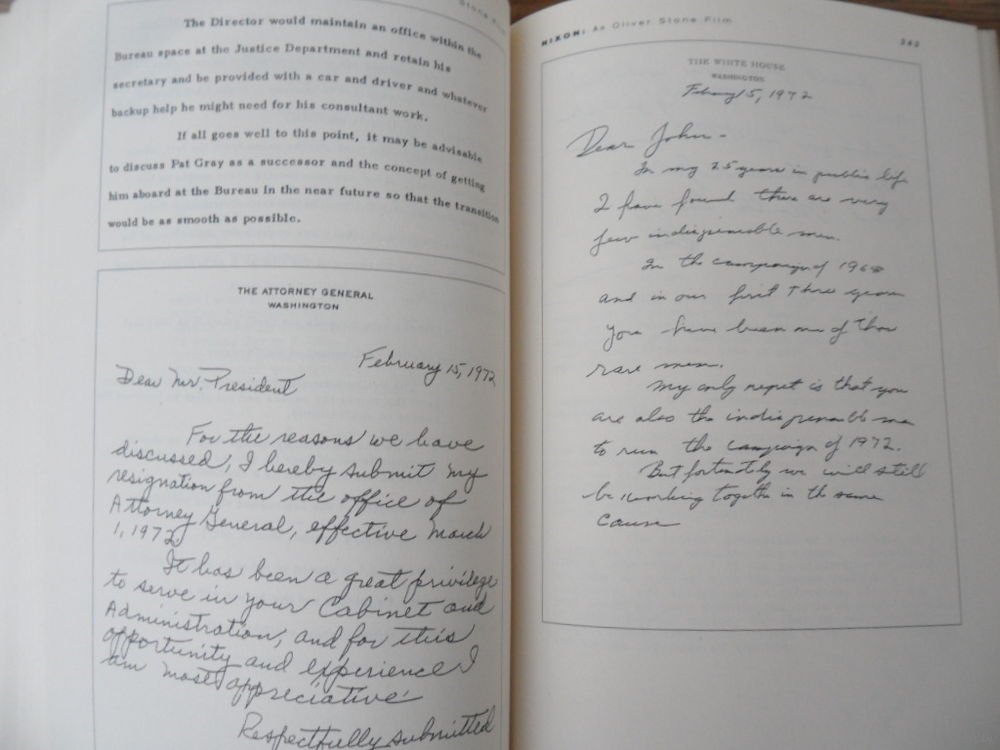 Stone
The Director would maintain an office within the
Bureau space at the Justice Department and retain his
secretary and be provided with a car and driver and whatever
backup help he might need for his consultant work.
If all goes well to this point, it may be advisable
to discuss Pat Gray as a successor and the concept of getting
him aboard at the Bureau in the near future so that the transition
would be as smooth as possible.
THE ATTORNEY GENERAL
WASHINGTON
February 15, 1972
Dear Mr. President
For the reasons we have
discussed, I hereby submit my
resignation from the office of
Attorney General, effective March
1, 1972
It has been a great privilege
to serve in your Cabinet and
Administration, and for this
opportunity and experience I
am most appreciative.
Respectfully submitted
NIXON: An Oliver Stone Film
THE WHITE HOUSE
WASHINGTON
February 15, 1972
Dear John -
In my 25 years in public life
I have found there are very
few indispensable men.
In the campaign of 1968
and in our first three years
you have been one of those
rare men.
My only regret is that you
are also the indispensable man
to run the campaign of 1972.
But fortunately we will still
be working together in the same
cause